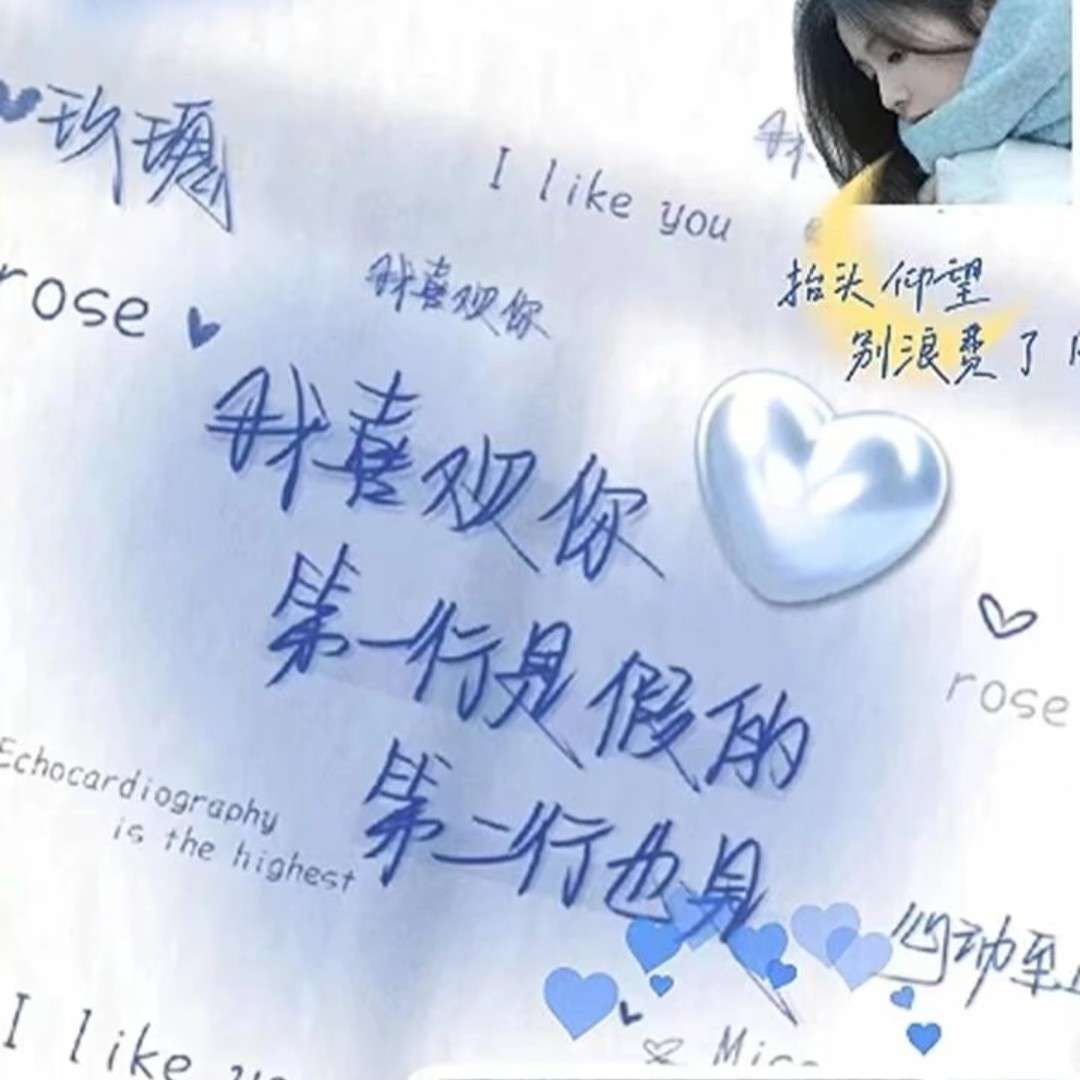 玫瑰
I like you
rose
我喜欢你
抬头仰望
别浪费了
我喜欢你
第一行是假的
第二行也是
rose
Echocardiography
is the highest
心动至上
I like